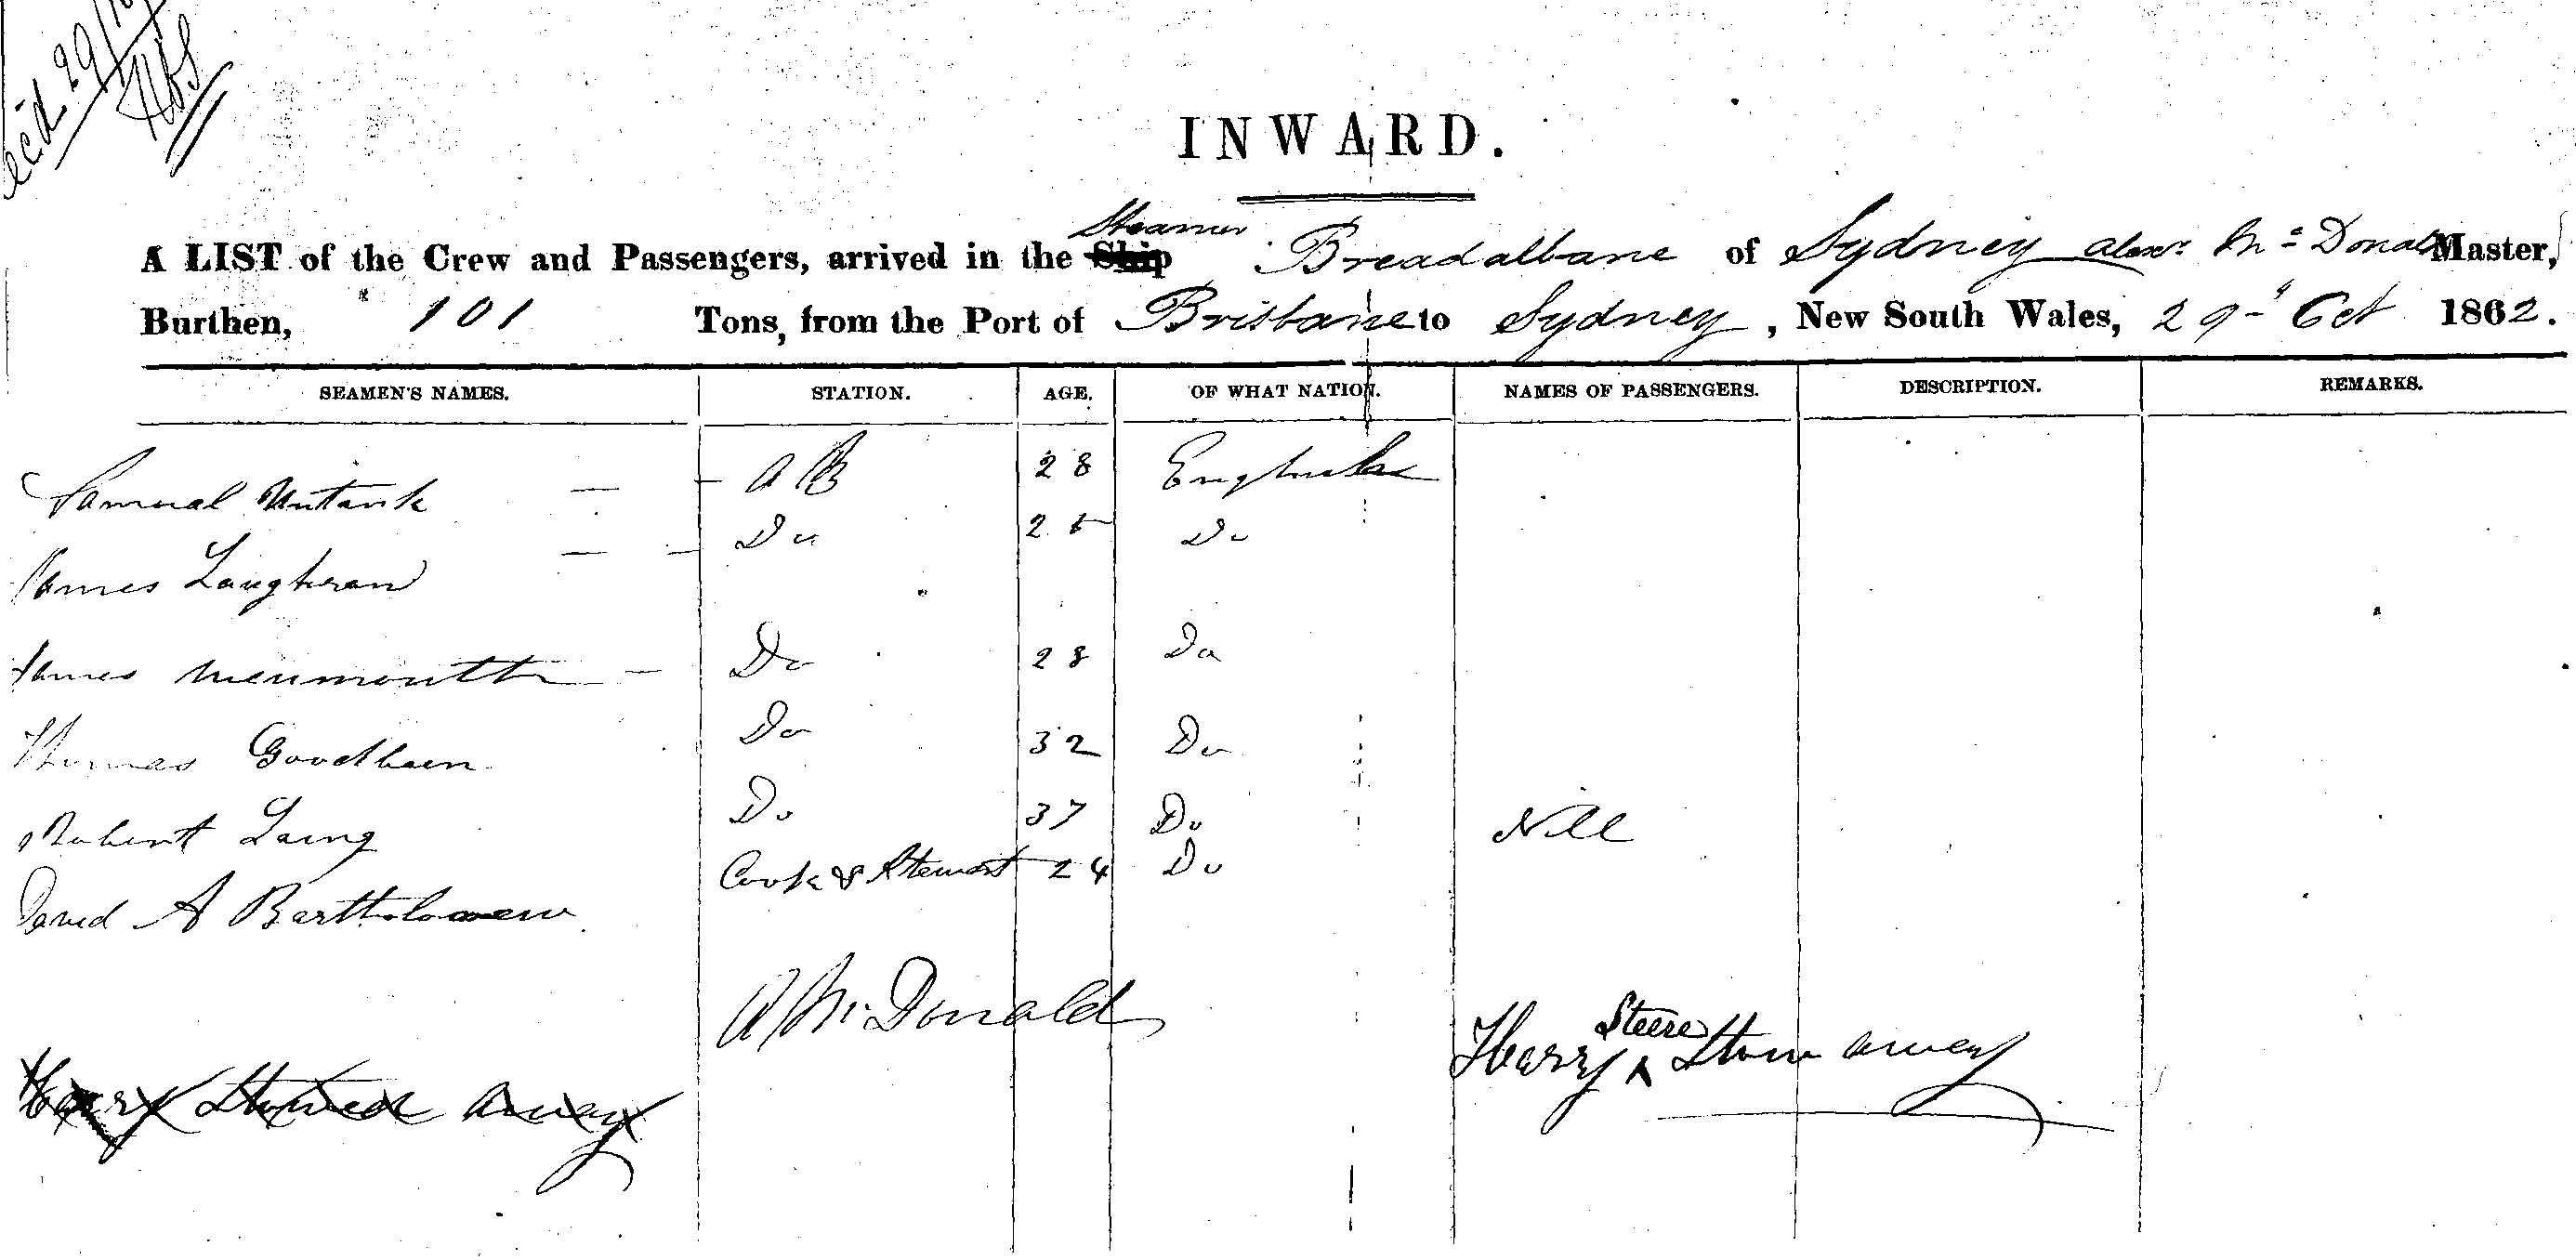 29/10
INWARD.
Steamer
A LIST of the Crew and Passengers, arrived in the Ship Breadalbane of Sydney Alexr. Mc Donald Master,
Burthen, 101 Tons, from the Port of Brisbane to Sydney, New South Wales, 29th Oct 1862.
SEAMEN'S NAMES. STATION. AGE. OF WHAT NATION. NAMES OF PASSENGERS. DESCRIPTION. REMARKS.
Samual — — AB 28
James Laughran — — Do 25 Do
James — Do 28 Do
Thomas Do 32 Do
Robert Laing Do 37 Do Nill
David A Bartholomew Cook & Steward 24 Do
A McDonald
Steere
Harry ^ Stow away
Harry Stowed away